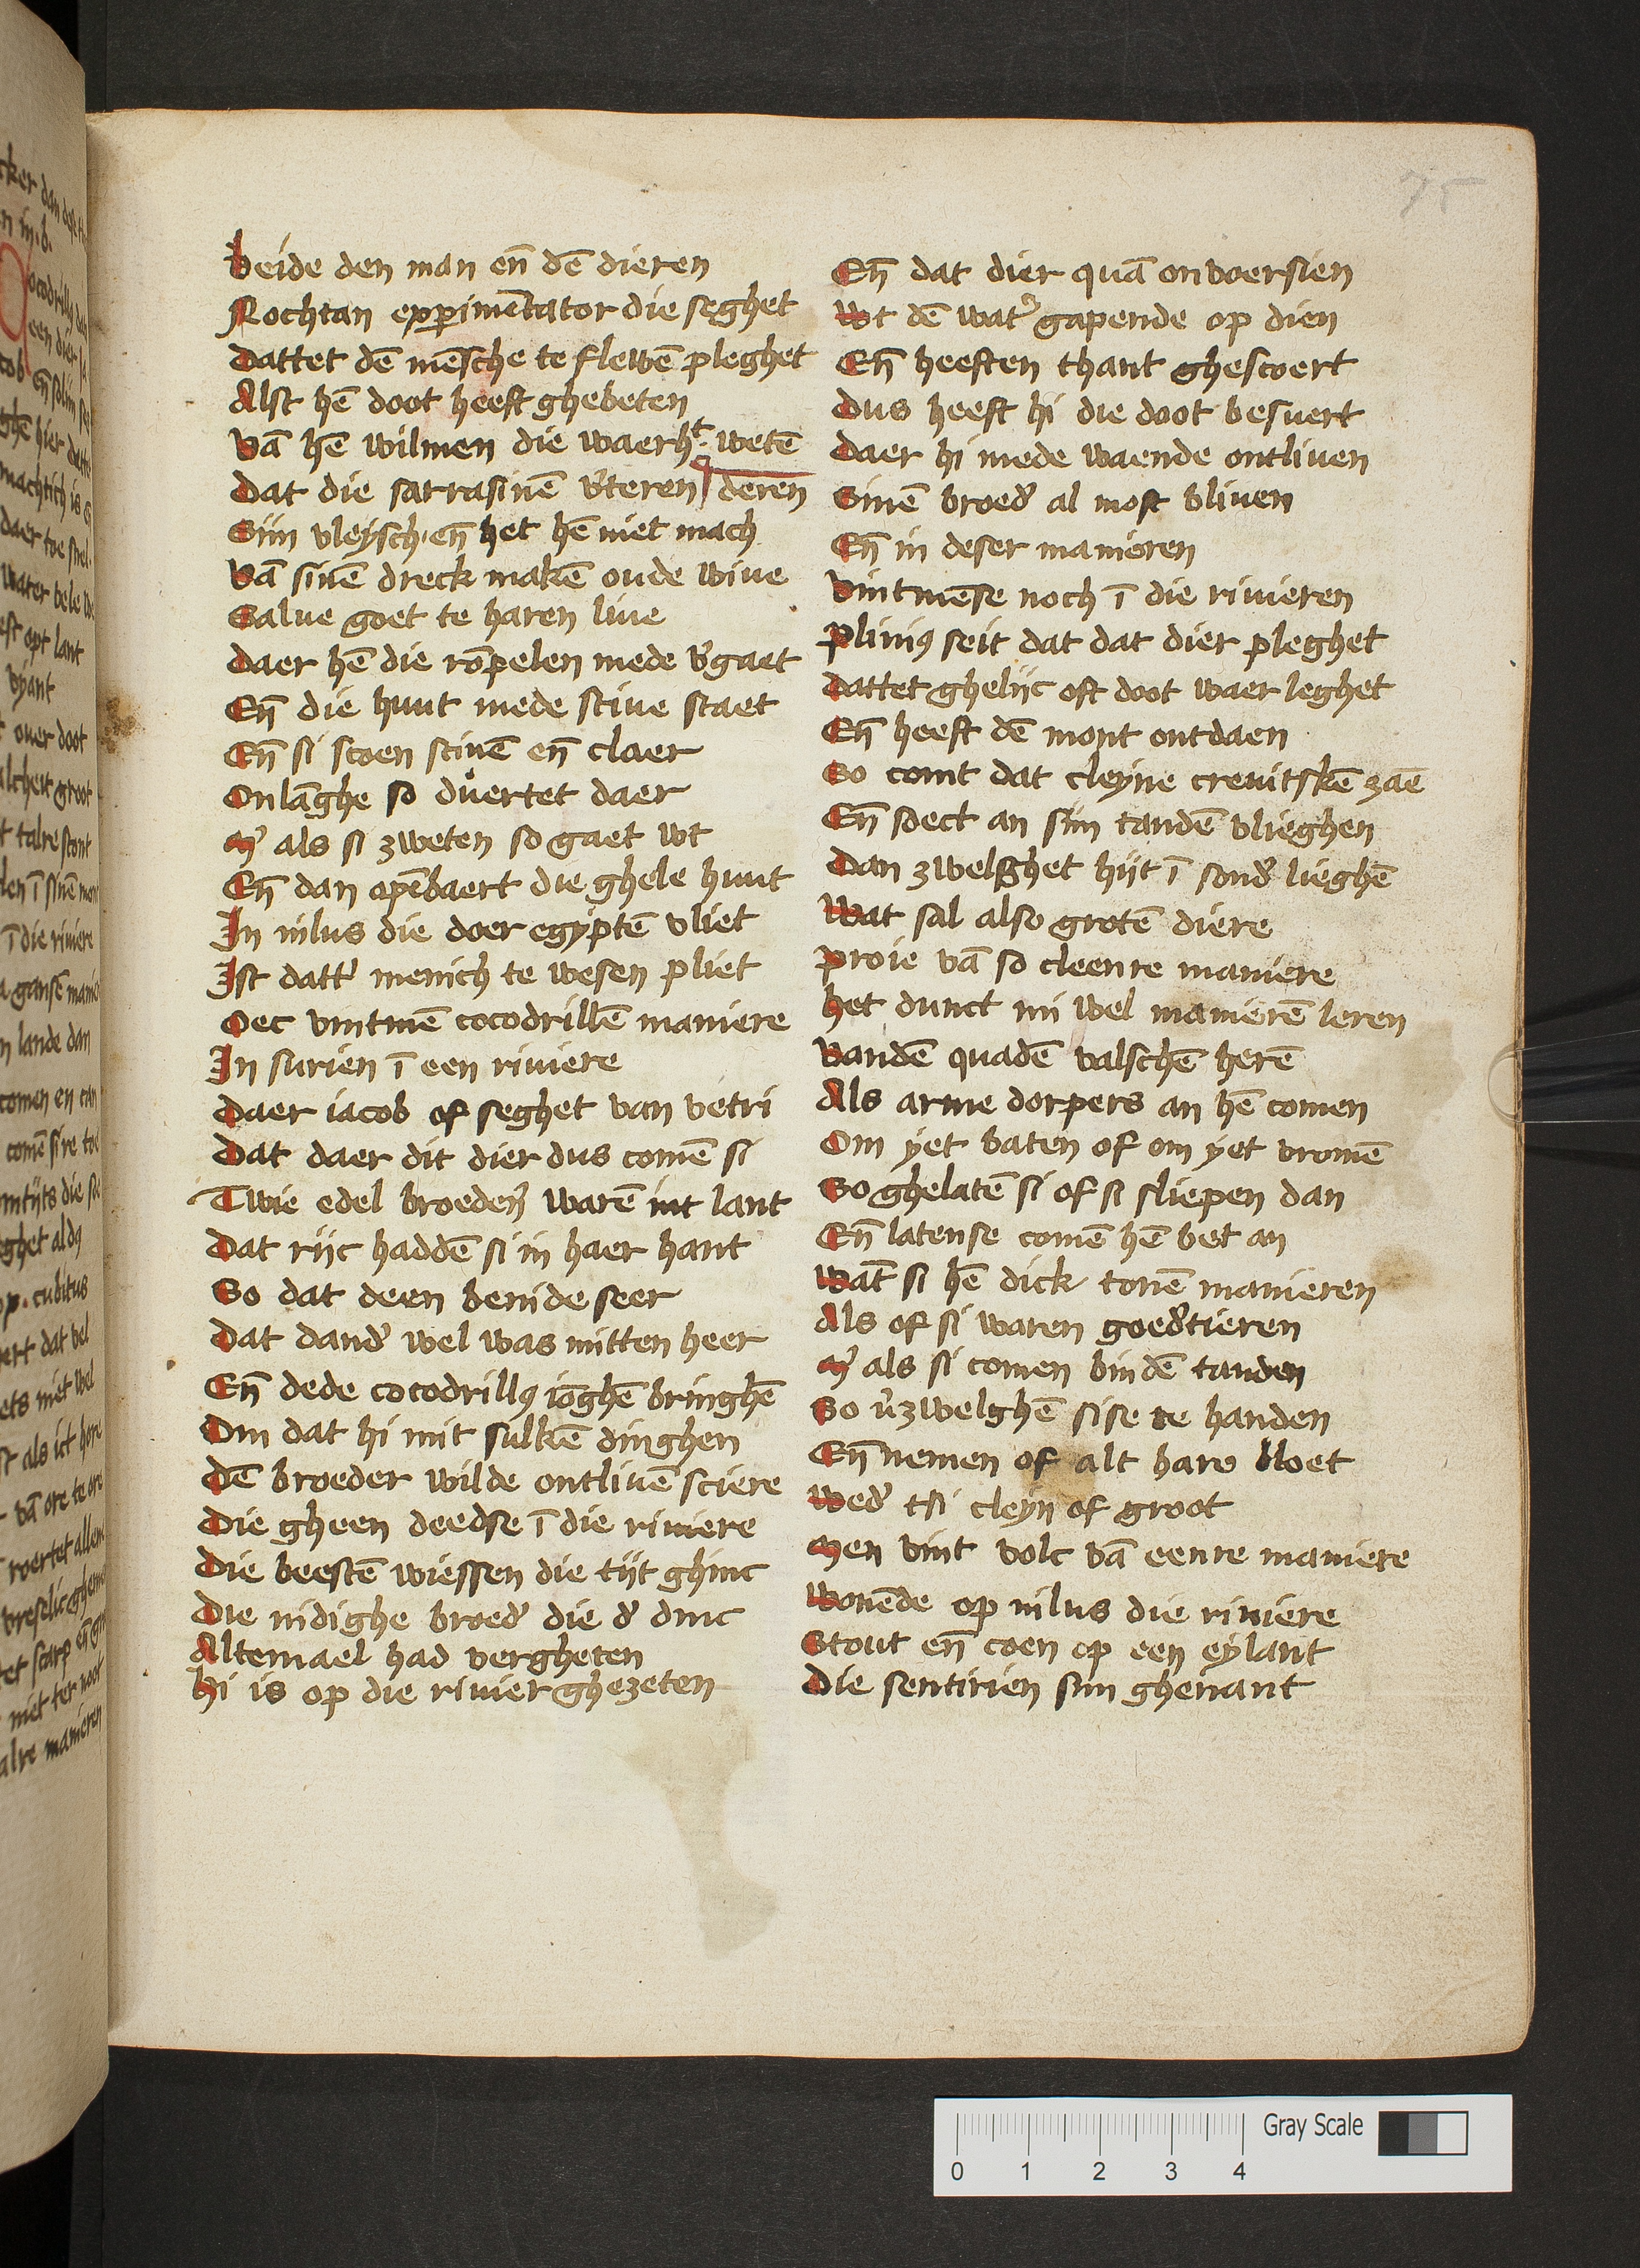 75
beide den man en̄ dē dieren
Nochtan experimētator die seghet
Dattet dē mēsche te flewē pleghet
Alst hē doot heeft ghebeten
Vā hē wilmen die waerht wetē
Dat die sarrasinē v'teren deren
Siin vleysch en̄ het hē niet mach
Vā sinē dreck makē oude wive
Salue goet te haren live
Daer hē die rōpelen mede v'gaet
En̄ die huut mede stiue staet
En̄ si scoen scinē en̄ claer
Onlāghe so duertet daer
M' als si zweten so gaet wt
En̄ dan opēbaert die ghele huut
In nilus die doer egyptē vliet
Ist datt' menich te wesen pliet
Oec vintmē cocodrillē maniere
In surien ī een riviere
Daer iacob of seghet van vetri
Dat daer dit dier dus comē si
Twie edel broeders warē int lant
Dat riic haddē si in haer hant
So dat deen benide seer
Dat dand' wel was mitten heer
En̄ dede cocodrillꝰ iōghē bringhē
Om dat hi mit sulkē dinghen
Dē broeder wilde ontlivē sciere
Die gheen deedse ī die riuiere
Die beestē wiessen die tiit ghinc
Die nidighe broed' die d' dinc
Altemael had vergheten
Hi is op die rivier ghezeten
En̄ dat dier quā onvoersien
Wt dē wat' gapende op dien
En̄ heeften thant ghescoert
Dus heeft hi die doot besuert
Daer hi mede waende ontliven
Sinē broed' al most bliven
En̄ in deser manieren
Vintmēse noch ī die rivieren
Pliniꝰ seit dat dat dier pleghet
Dattet gheliic oft doot waer leghet
En̄ heeft dē mont ontdaen
So comt dat cleyne crevitskē zaē
En̄ soect an siin tandē vlieghen
Dan zwelghet hiit ī sond' lieghē
Wat sal also grotē diere
Proie vā so cleenre maniere
Het dunct mi wel manierē leren
Vandē quadē valschē herē
Als arme dorpers an hē comen
Om yet baten of om yet vromē
So ghelatē si of si sliepen dan
En̄ latense comē hē bet an
Wāt si hē dick tonē manieren
Als of si waren goed'tieren
M' als si comen bindē tanden
So v'zwelghē sise te handen
En̄ nemen of alt hare bloet
Wed' tsi cleyn of groot
Men vint volc vā eenre maniere
Wonēde op nilus die riviere
Stout en̄ coen op een eylant
Die sentirien siin ghenant
Gray Scale
0 1 2 3 4